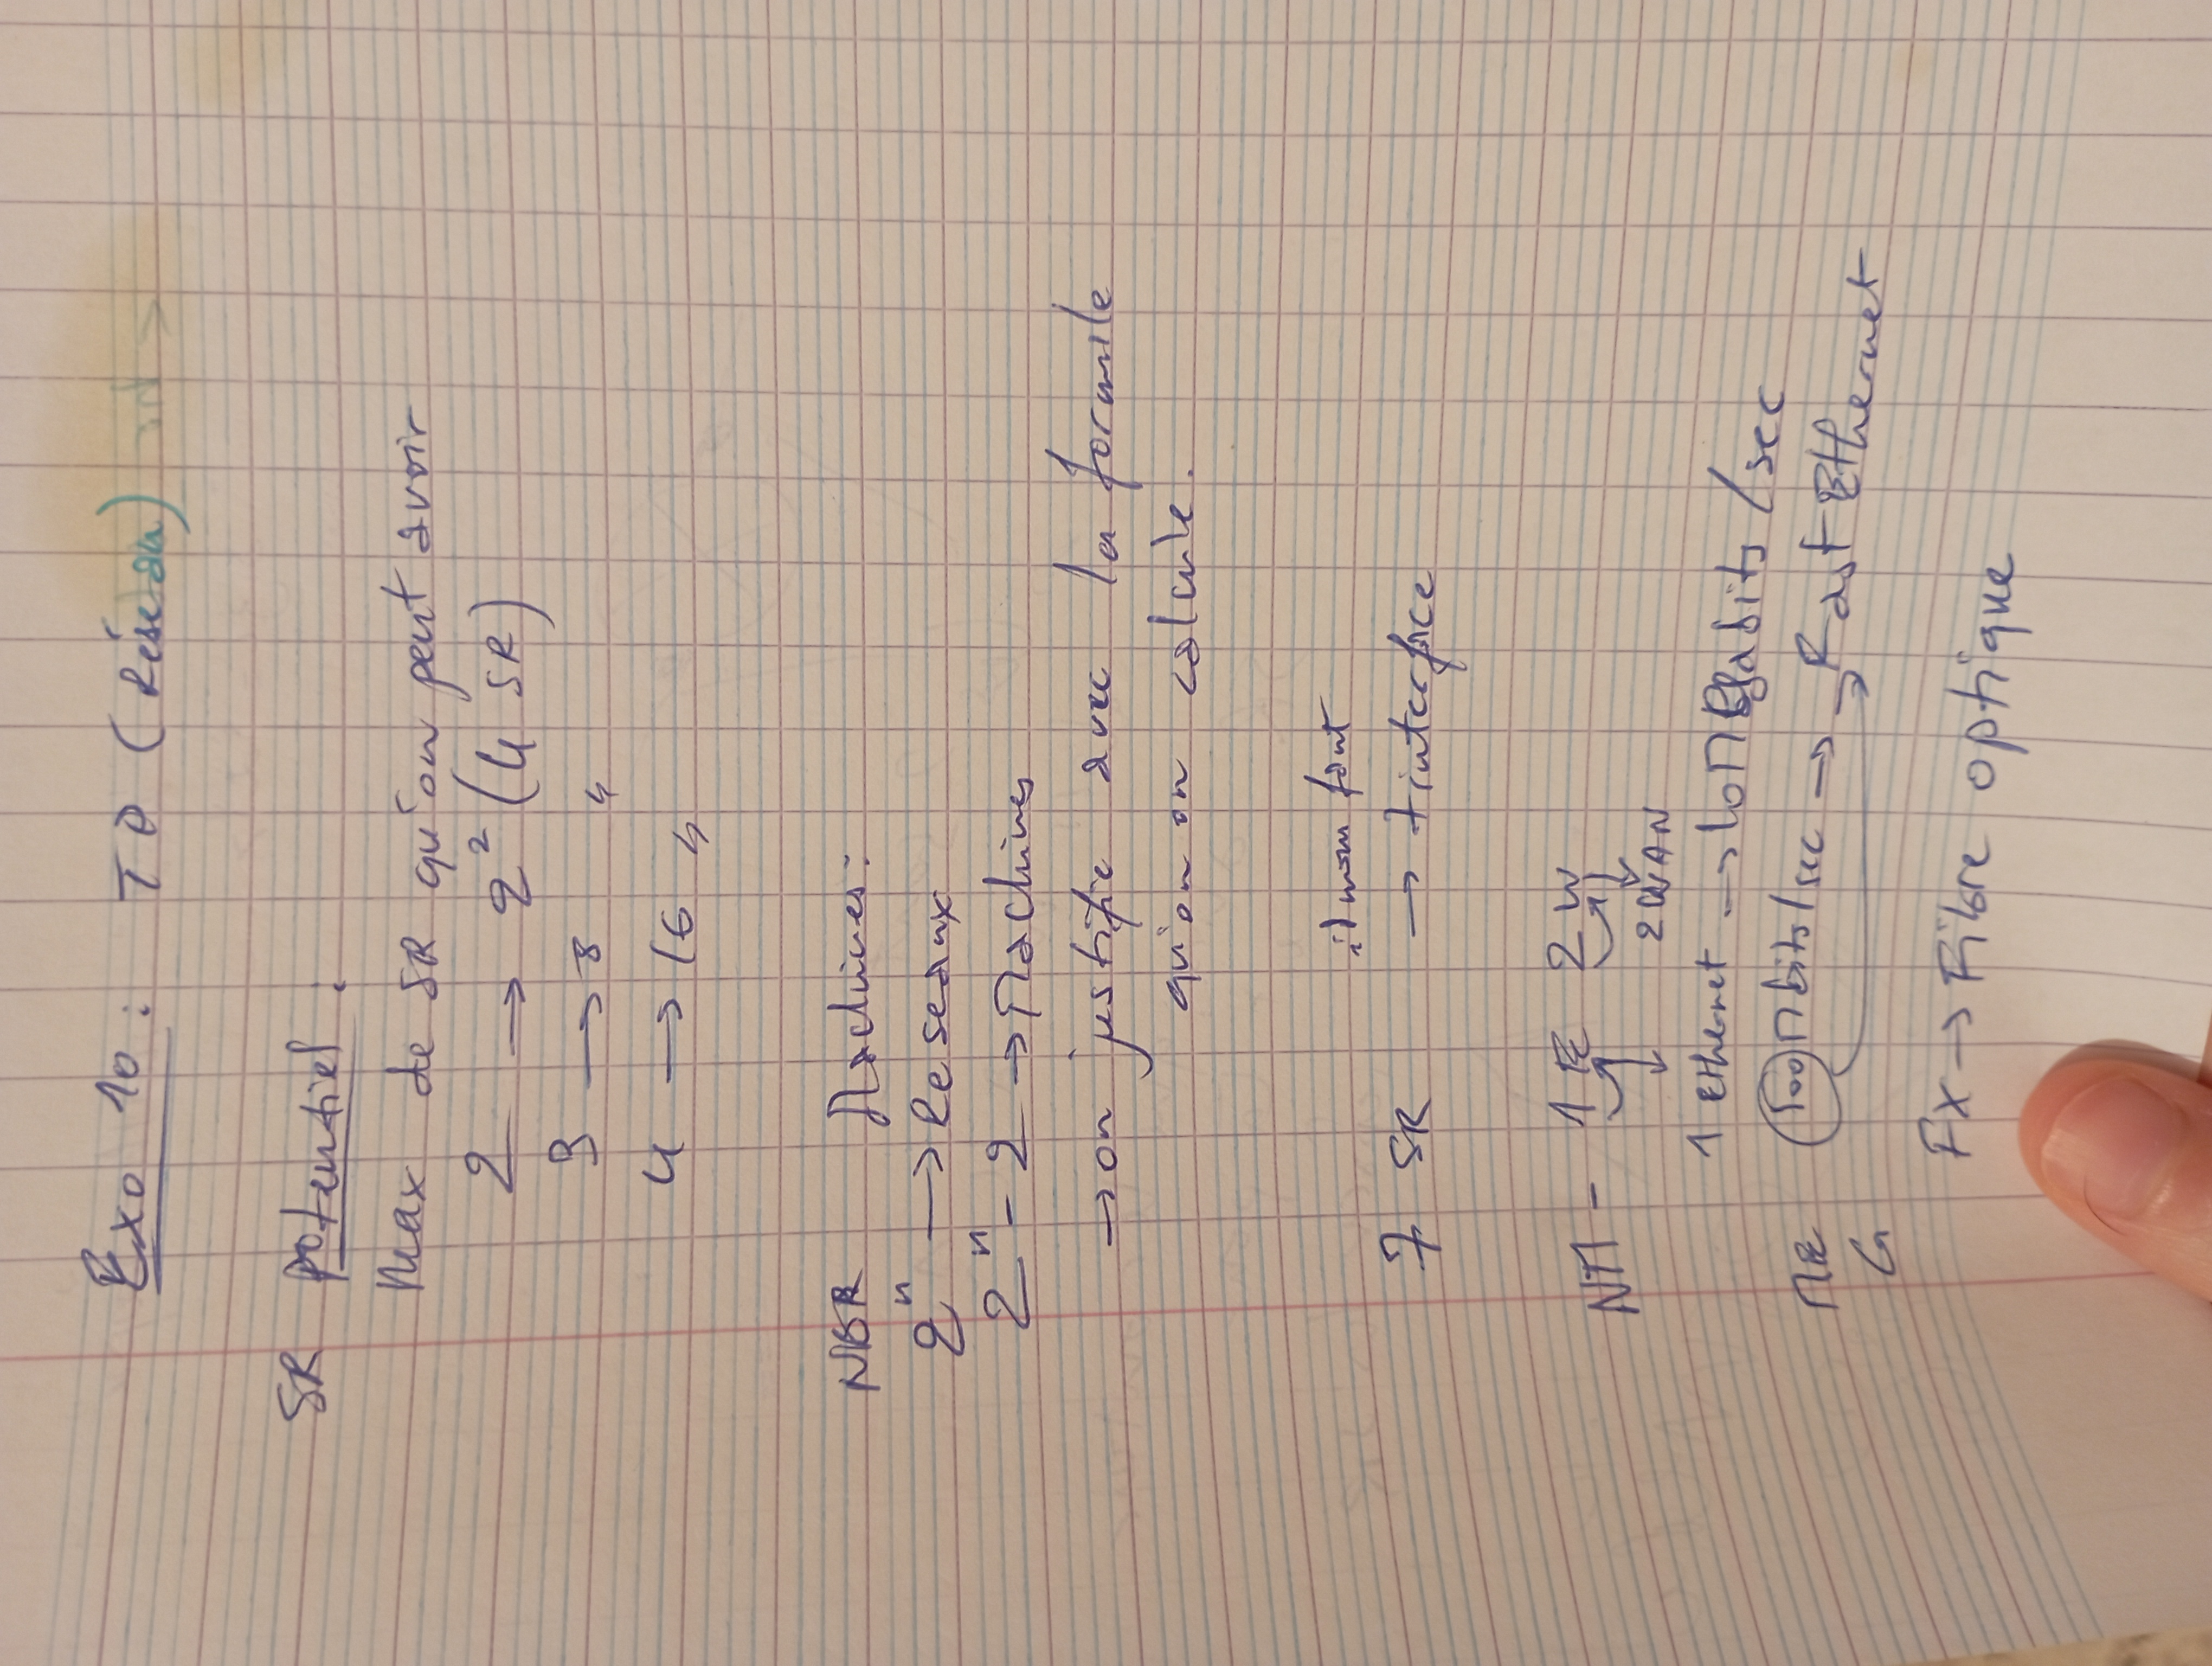 Exo 10 : TD (Réseau)
SR potentiel :
Max de SR qu'on peut avoir
2 → 2² (4 SR)
3 → 8 "
4 → 16 "
NBR Machines :
2ⁿ → Reseaux
2ⁿ - 2 → Machines
→ on justifie avec la formule
qu'on on calcule.
il nous faut
7 SR → 7 interface
NM - 1 E 2 W
2 WAN
1 Ethernet → 10 Mégabits / sec
ME 100 Mbits / sec → Fast Ethernet
G
FX → Fibre optique